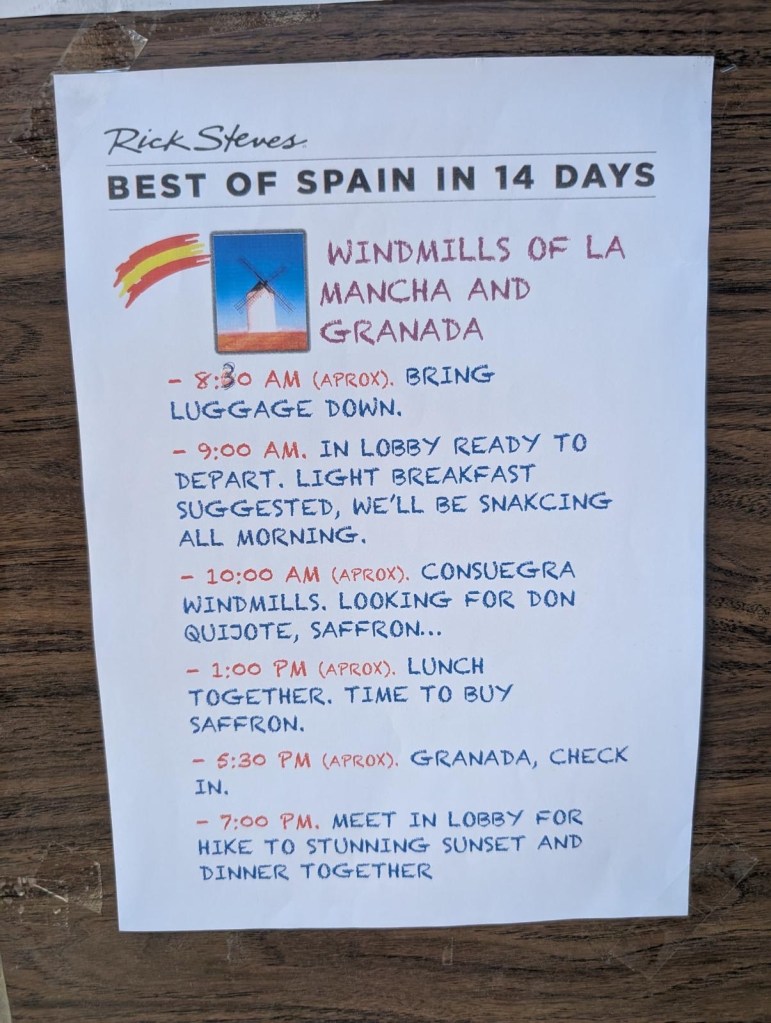 Rick Steves
BEST OF SPAIN IN 14 DAYS
WINDMILLS OF LA
MANCHA AND
GRANADA
- 8:30 AM (APROX). BRING
LUGGAGE DOWN.
- 9:00 AM. IN LOBBY READY TO
DEPART. LIGHT BREAKFAST
SUGGESTED, WE'LL BE SNAKCING
ALL MORNING.
- 10:00 AM (APROX). CONSUEGRA
WINDMILLS. LOOKING FOR DON
QUIJOTE, SAFFRON...
- 1:00 PM (APROX). LUNCH
TOGETHER. TIME TO BUY
SAFFRON.
- 5:30 PM (APROX). GRANADA, CHECK
IN.
- 7:00 PM. MEET IN LOBBY FOR
HIKE TO STUNNING SUNSET AND
DINNER TOGETHER